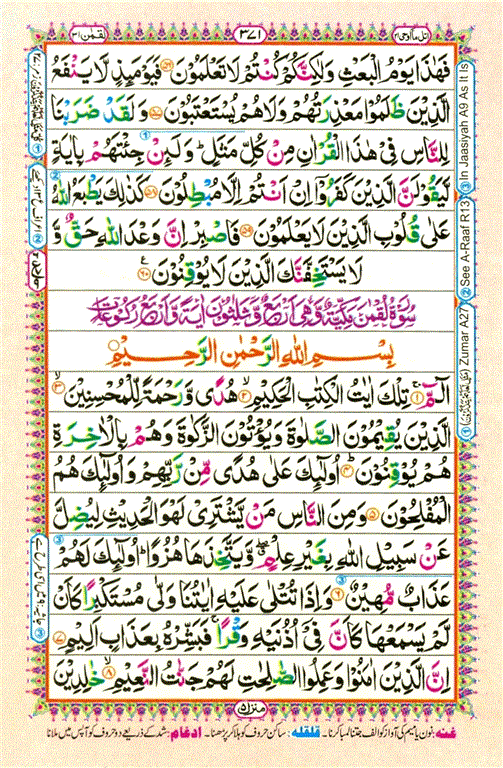 اتل ما اوحی ۲۱
۳۷۱
لقمٰن ۳۱
فَهٰذَا يَوْمُ الْبَعْثِ وَلٰكِنَّكُمْ كُنْتُمْ لَا تَعْلَمُوْنَ ۝۵۶ فَيَوْمَىِٕذٍ لَّا يَنْفَعُ
الَّذِيْنَ ظَلَمُوْا مَعْذِرَتُهُمْ وَلَا هُمْ يُسْتَعْتَبُوْنَ ۝۵۷ وَلَقَدْ ضَرَبْنَا
لِلنَّاسِ فِيْ هٰذَا الْقُرْاٰنِ مِنْ كُلِّ مَثَلٍ ؕ وَلَىِٕنْ جِئْتَهُمْ بِاٰيَةٍ
لَّيَقُوْلَنَّ الَّذِيْنَ كَفَرُوْۤا اِنْ اَنْتُمْ اِلَّا مُبْطِلُوْنَ ۝۵۸ كَذٰلِكَ يَطْبَعُ اللّٰهُ
عَلٰى قُلُوْبِ الَّذِيْنَ لَا يَعْلَمُوْنَ ۝۵۹ فَاصْبِرْ اِنَّ وَعْدَ اللّٰهِ حَقٌّ وَّ
لَا يَسْتَخِفَّنَّكَ الَّذِيْنَ لَا يُوْقِنُوْنَ ۝۶۰
سُوْرَةُ لُقْمٰنَ مَكِّيَّةٌ وَّهِيَ اَرْبَعٌ وَّثَلٰثُوْنَ اٰيَةً وَّاَرْبَعُ رُكُوْعَاتٍ
بِسْمِ اللّٰهِ الرَّحْمٰنِ الرَّحِيْمِ
الٓمّٓ ۝۱ تِلْكَ اٰيٰتُ الْكِتٰبِ الْحَكِيْمِ ۝۲ هُدًى وَّرَحْمَةً لِّلْمُحْسِنِيْنَ ۝۳
الَّذِيْنَ يُقِيْمُوْنَ الصَّلٰوةَ وَيُؤْتُوْنَ الزَّكٰوةَ وَهُمْ بِالْاٰخِرَةِ
هُمْ يُوْقِنُوْنَ ۝۴ اُولٰٓىِٕكَ عَلٰى هُدًى مِّنْ رَّبِّهِمْ وَاُولٰٓىِٕكَ هُمُ
الْمُفْلِحُوْنَ ۝۵ وَمِنَ النَّاسِ مَنْ يَّشْتَرِيْ لَهْوَ الْحَدِيْثِ لِيُضِلَّ
عَنْ سَبِيْلِ اللّٰهِ بِغَيْرِ عِلْمٍ ۖ وَّيَتَّخِذَهَا هُزُوًا ؕ اُولٰٓىِٕكَ لَهُمْ
عَذَابٌ مُّهِيْنٌ ۝۶ وَاِذَا تُتْلٰى عَلَيْهِ اٰيٰتُنَا وَلّٰى مُسْتَكْبِرًا كَاَنْ
لَّمْ يَسْمَعْهَا كَاَنَّ فِيْۤ اُذُنَيْهِ وَقْرًا ۚ فَبَشِّرْهُ بِعَذَابٍ اَلِيْمٍ ۝۷
اِنَّ الَّذِيْنَ اٰمَنُوْا وَعَمِلُوا الصّٰلِحٰتِ لَهُمْ جَنّٰتُ النَّعِيْمِ ۝۸ خٰلِدِيْنَ
منزل ۵
غنه: نون یا میم کی آواز کو الف جتنا لمبا کرنا۔ قلقله: ساکن حروف کو ہلا کر پڑھنا۔ ادغام: شد کے ذریعے دو حروف کو آپس میں ملانا
① Zumar A27 ② See A-Raaf R13 ③ In Jaasiyah A9 As It Is